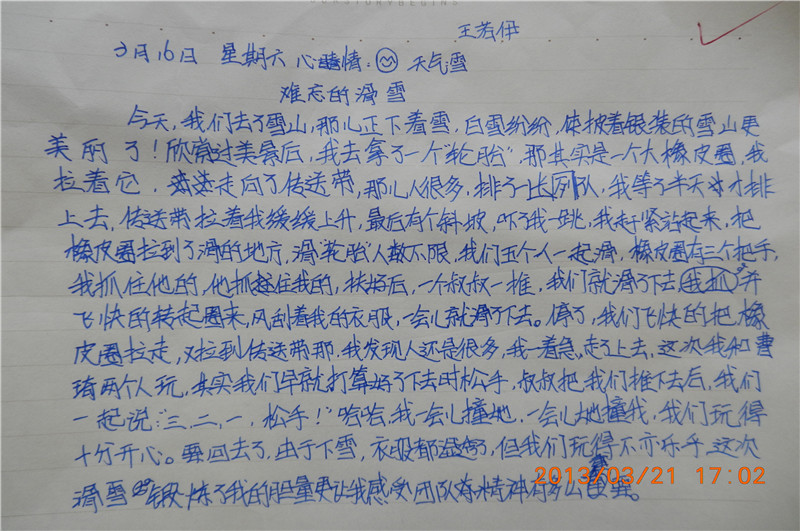 王若伊
3月16日 星期六 心情: 天气雪
难忘的滑雪
今天,我们去了雪山,那儿正下着雪,白雪纷纷,使披着银装的雪山更
美丽了!欣赏过美景后,我去拿了一个“轮胎”那其实是一个大橡皮圈,我
拉着它,走向了传送带,那儿人很多,排了一长列队,我等了半天才排
上去,传送带拉着我缓缓上升,最后有个斜坡,吓了我一跳,我赶紧站起来,把
橡皮圈拉到了滑的地方,滑“轮胎”人数不限,我们五个人一起滑,橡皮圈有三个把手,
我抓住他的,他抓住我的,扶好后,一个叔叔一推,我们就滑了下去(我抓)并
飞快的转起圈来,风刮着我的衣服,一会儿就滑了下去。停了,我们飞快的把橡
皮圈拉走,又拉到传送带那,我发现人还是很多,我一着急,走了上去,这次我和曹
琦两个人玩,其实我们早就打算好了下去时松手,叔叔把我们推下去后,我们
一起说:“三、二、一,松手!”哈哈,我一会儿撞她,一会儿她撞我,我们玩得
十分开心。要回去了,由于下雪,衣服都湿了,但我们玩得不亦乐乎,这次
滑雪锻炼了我的胆量更让我感受团队精神有多么重要。
2013/03/21 17:02